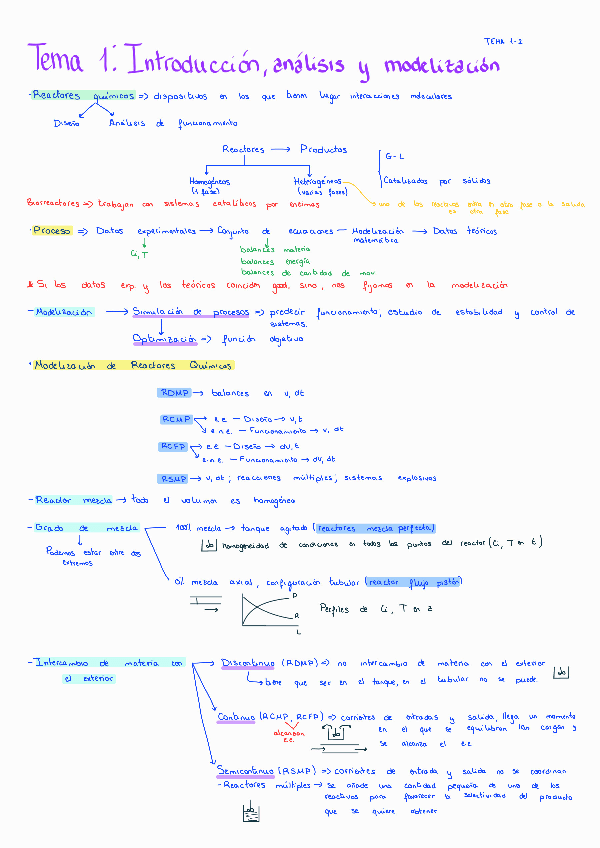 TEMA 1-2
Tema 1: Introducción, análisis y modelización
· Reactores químicos => dispositivos en los que tienen lugar interacciones moleculares
Diseño Análisis de funcionamiento
Reactores → Productos
Homogéneos
(1 fase)
Heterogéneos
(varias fases)
G-L
Catalizadas por sólidos
→ uno de los reactivos entra en otra fase o la salida
es otra fase
Biorreactores => trabajan con sistemas catalíticos por enzimas
· Proceso => Datos experimentales → Conjunto de ecuaciones — Modelización → Datos teóricos
matemática
Ci, T
balances materia
balances energía
balances de cantidad de mov
* Si los datos exp. y los teóricos coinciden good, sino, nos fijamos en la modelización
- Modelización → Simulación de procesos => predecir funcionamiento, estudio de estabilidad y control de
sistemas.
Optimización => función objetivo
· Modelización de Reactores Químicos
RDMP → balances en v, dt
RCMP → e.e. — Diseño → v, t
e.n.e. — Funcionamiento → v, dt
RCFP → e.e — Diseño → dv, t
e.n.e. — Funcionamiento → dv, dt
RSMP → v, dt ; reacciones múltiples, sistemas explosivos
- Reactor mezcla → todo el volumen es homogéneo
- Grado de mezcla
Podemos estar entre dos
extremos
100% mezcla → tanque agitado (reactores mezcla perfecta)
homogeneidad de condiciones en todos los puntos del reactor (Ci, T en t)
0% mezcla axial, configuración tubular (reactor flujo pistón)
P
R
L
Perfiles de Ci, T en z
- Intercambio de materia con
el exterior
Discontinuo (RDMP) => no intercambio de materia con el exterior
→ tiene que ser en el tanque, en el tubular no se puede
Continuo (RCMP, RCFP) => corrientes de entradas y salida, llega un momento
alcanzan
e.e.
en el que se equilibran las cargas y
se alcanza el e.e
Semicontinuo (RSMP) => corrientes de entrada y salida no se coordinan
- Reactores múltiples → se añade una cantidad pequeña de uno de los
reactivos para favorecer la selectividad del producto
que se quiere obtener